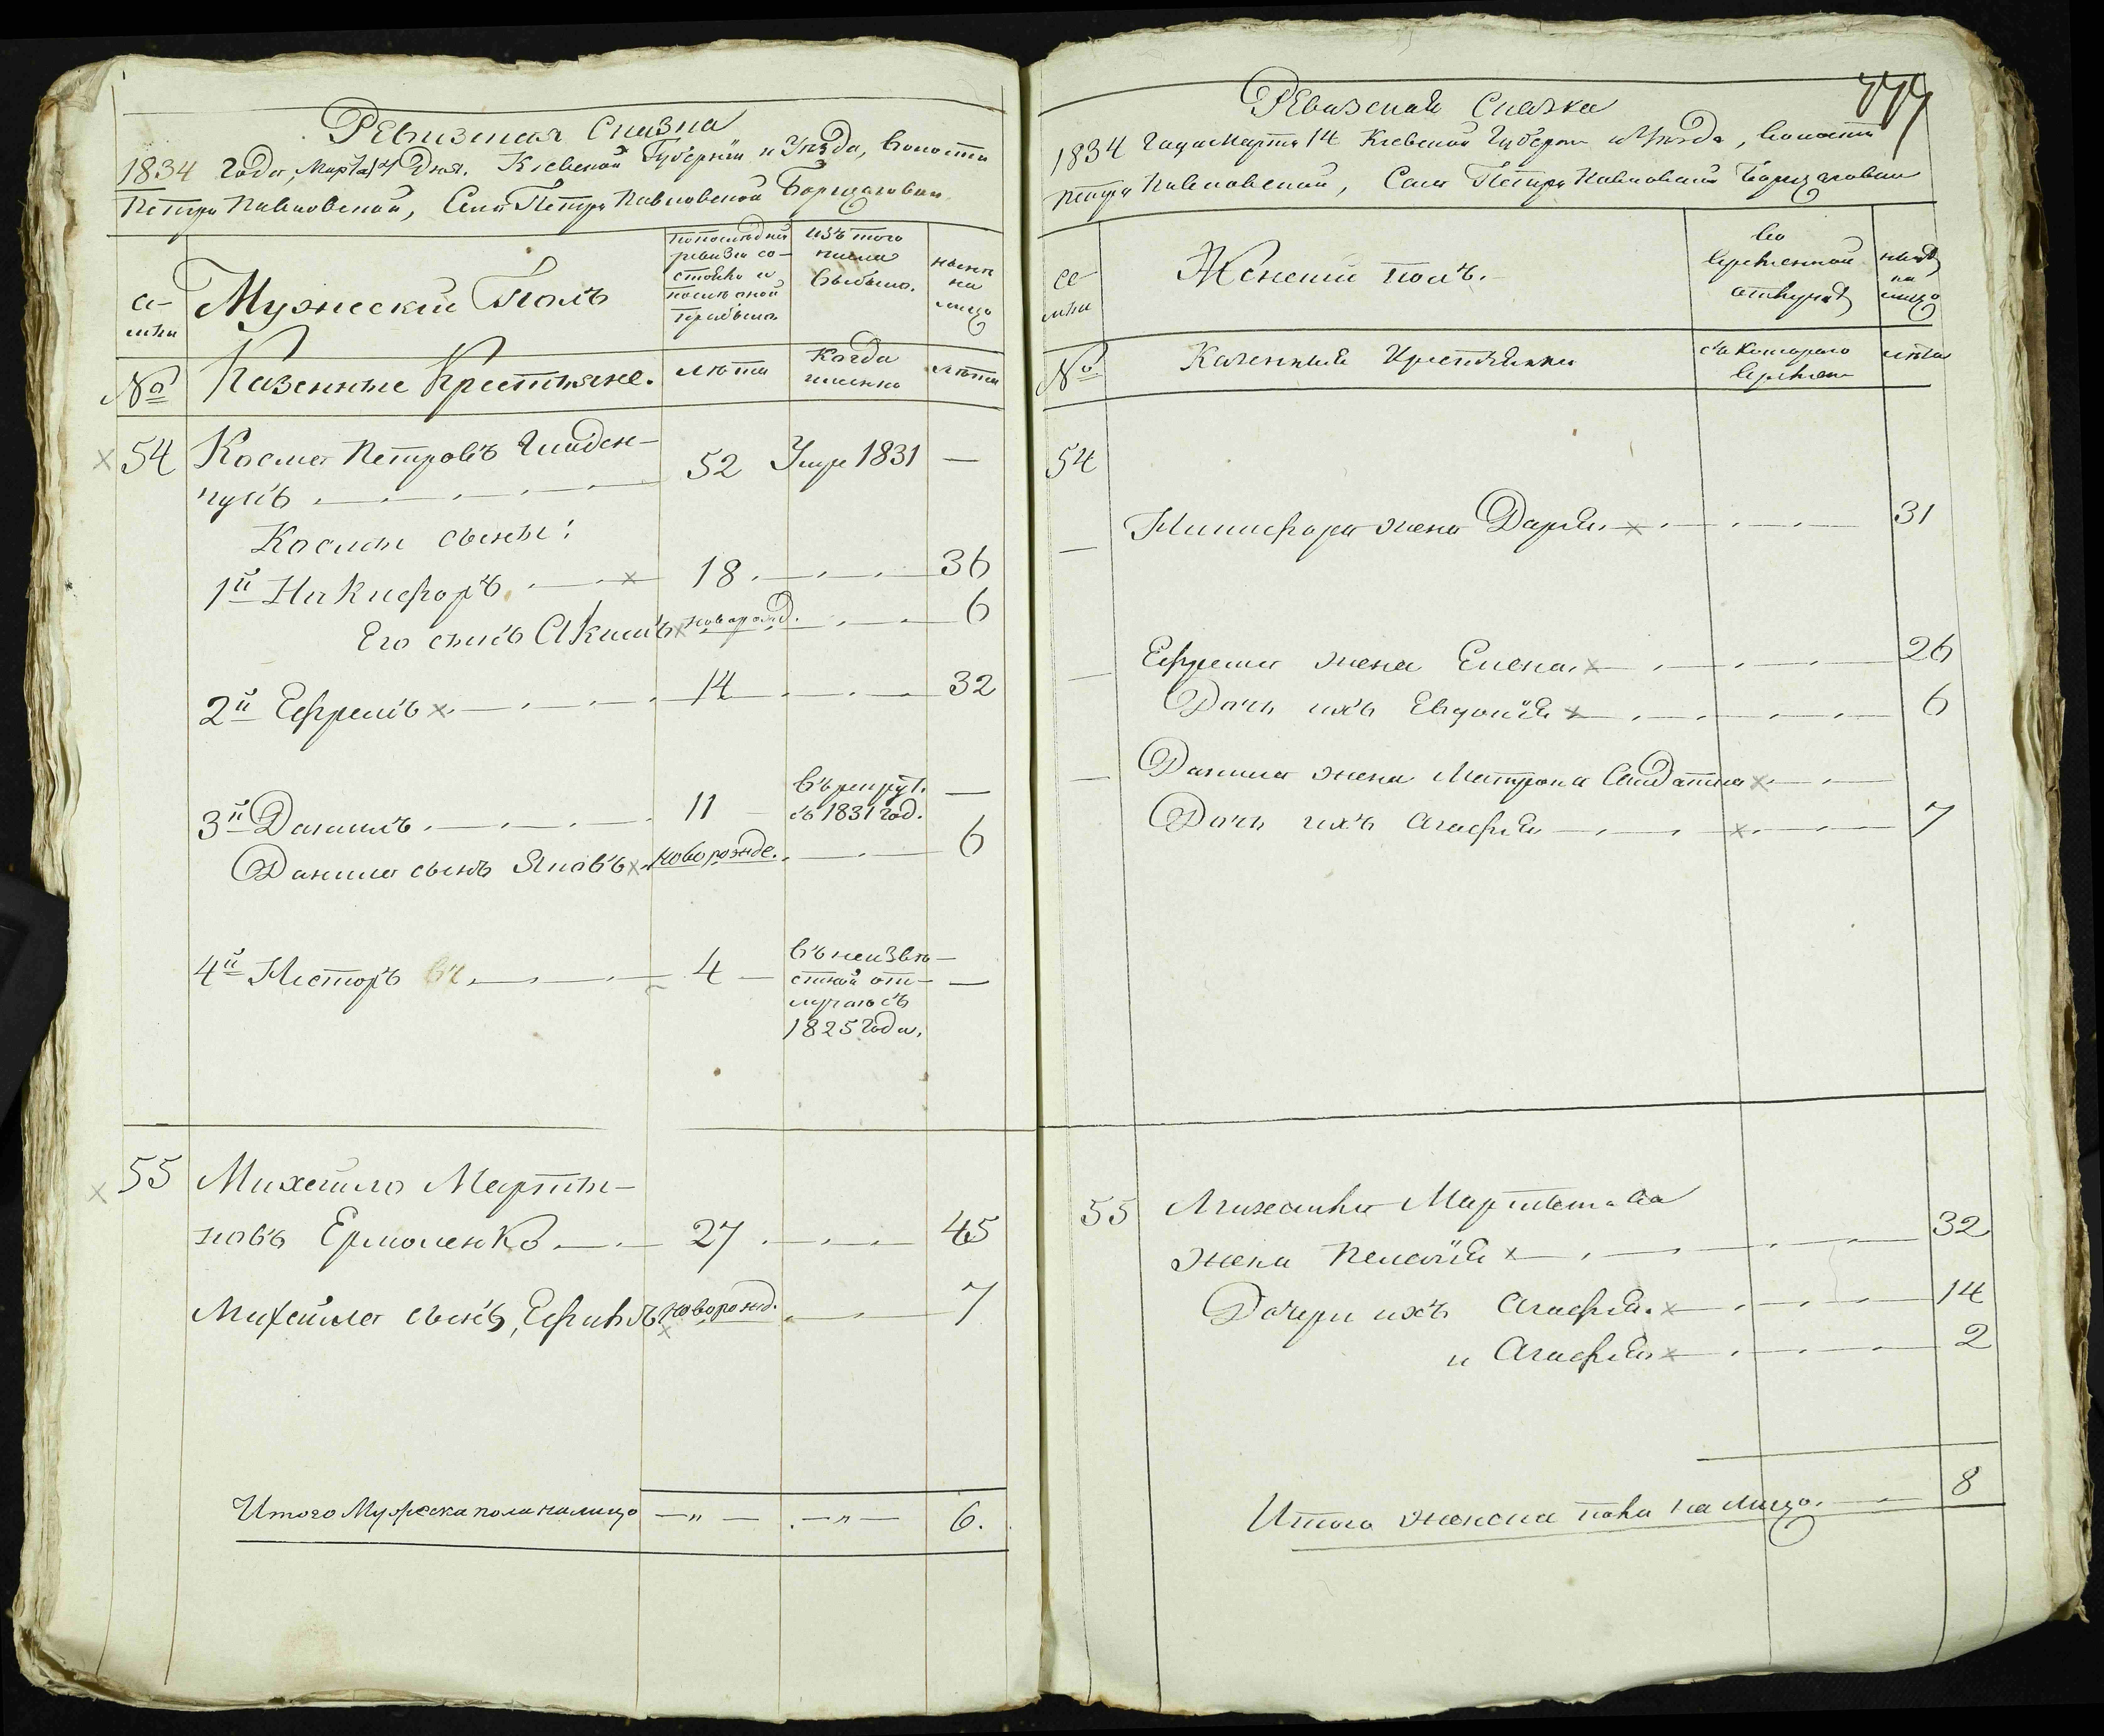 Ревизская Сказка
1834 года, Марта 14 Дня. Кіевской Губерніи и Уѣзда, Волости
Петро Павловской, Села Петро Павловской Борщаговки
се-
мьи
Мужескій Полъ
по последней
ревизіи со-
стояло и
после оной
прибыло
изъ того
числа
выбыло.
ныне
на
лицо
№
Казенные Крестьяне.
лѣта
Когда
именно
лѣта
54
Косма Петровъ
52
Умре 1831
—
Космы сыны:
1й Никифоръ
18
36
Его сынъ Акимъ
новорожд.
6
2й Ефремъ
14
32
3й Данилъ
11
въ рекрут.
съ 1831 год.
—
Данила сынъ Яковъ
новорожде.
6
4й Несторъ
4
въ неизвѣ-
стной от-
лучкѣ съ
1825 года.
—
55
Михайло Марты-
новъ Ермоленко
27
45
Михайла сынъ,
новорожд.
7
Итого Мужеска пола налицо
—"—
—"—
6.
777
Ревизская Сказка
1834 года Марта 14 Кіевской Губерніи и Уѣзда, Волости
Петро Павловской, Села Петро Павловской Борщаговки
се-
мьи
Женскій полъ.
во
временной
отлучкѣ
ныне
на
лицо
№
Казенныя Крестьянки
съ котораго
времени
лѣта
54
— Никифора жена Дарья
31
— Ефрема жена Елена
26
Дочь ихъ Евдокія
6
— Данила жена Матрона Солдатка
Дочь ихъ Агафія
7
55
Михайла Мартынова
жена Пелагія
32
Дочери ихъ Агафія
14
и Агафія
2
Итого женска пола на лицо.
8